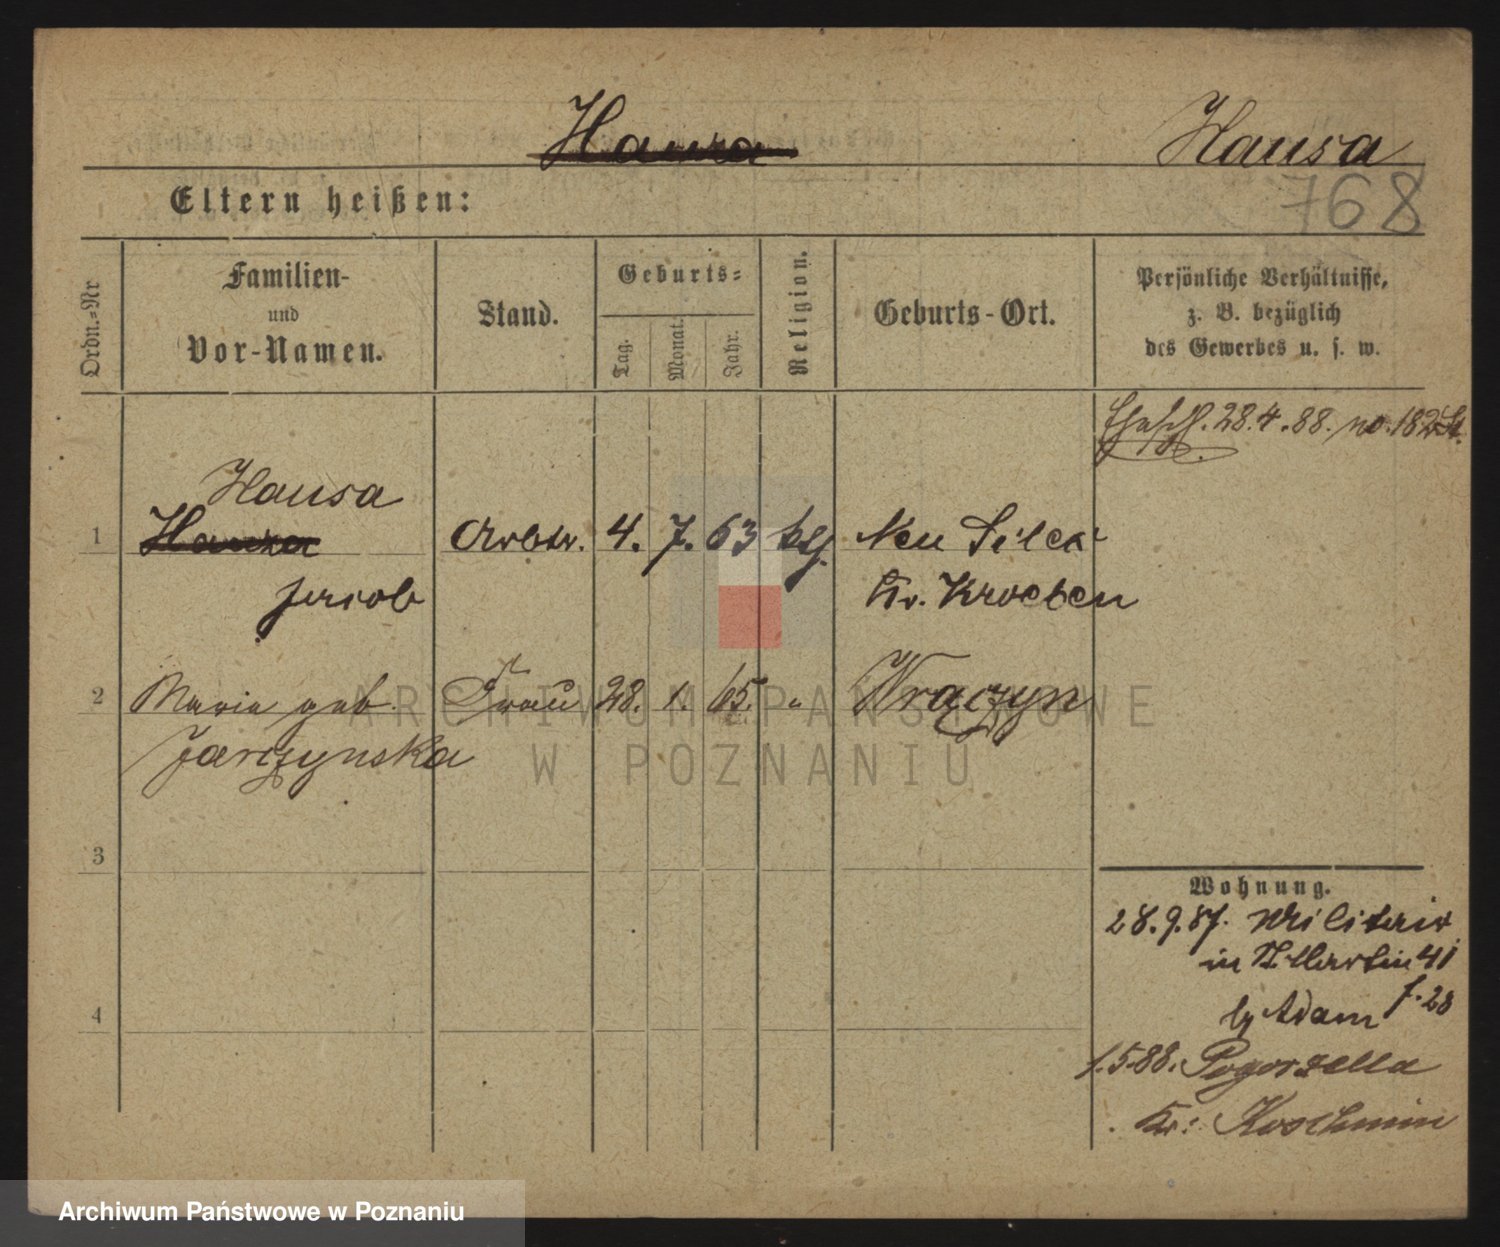 Hausa
768
Eltern heißen:
Ordn.=Nr
Familien-
und
Vor-Namen.
Stand.
Geburts=
Tag.
Monat.
Jahr.
Religion.
Geburts-Ort.
Persönliche Verhältnisse,
z. B. bezüglich
des Gewerbes u. s. w.
28.4.88. no. 182
Hausa
1
Arbtr. 4. 7. 63 klj. Neu
Jacob
Kr. Kroeben
2
Maria geb. Frau 28. 1. 65. " Wrączyn
Jarczynska
3
4
Wohnung.
28.9.87.
in St Martin 41
by Adam
1.5.88. Pogorzella
Kr: Koschmin
ARCHIWUM PAŃSTWOWE
W POZNANIU
Archiwum Państwowe w Poznaniu